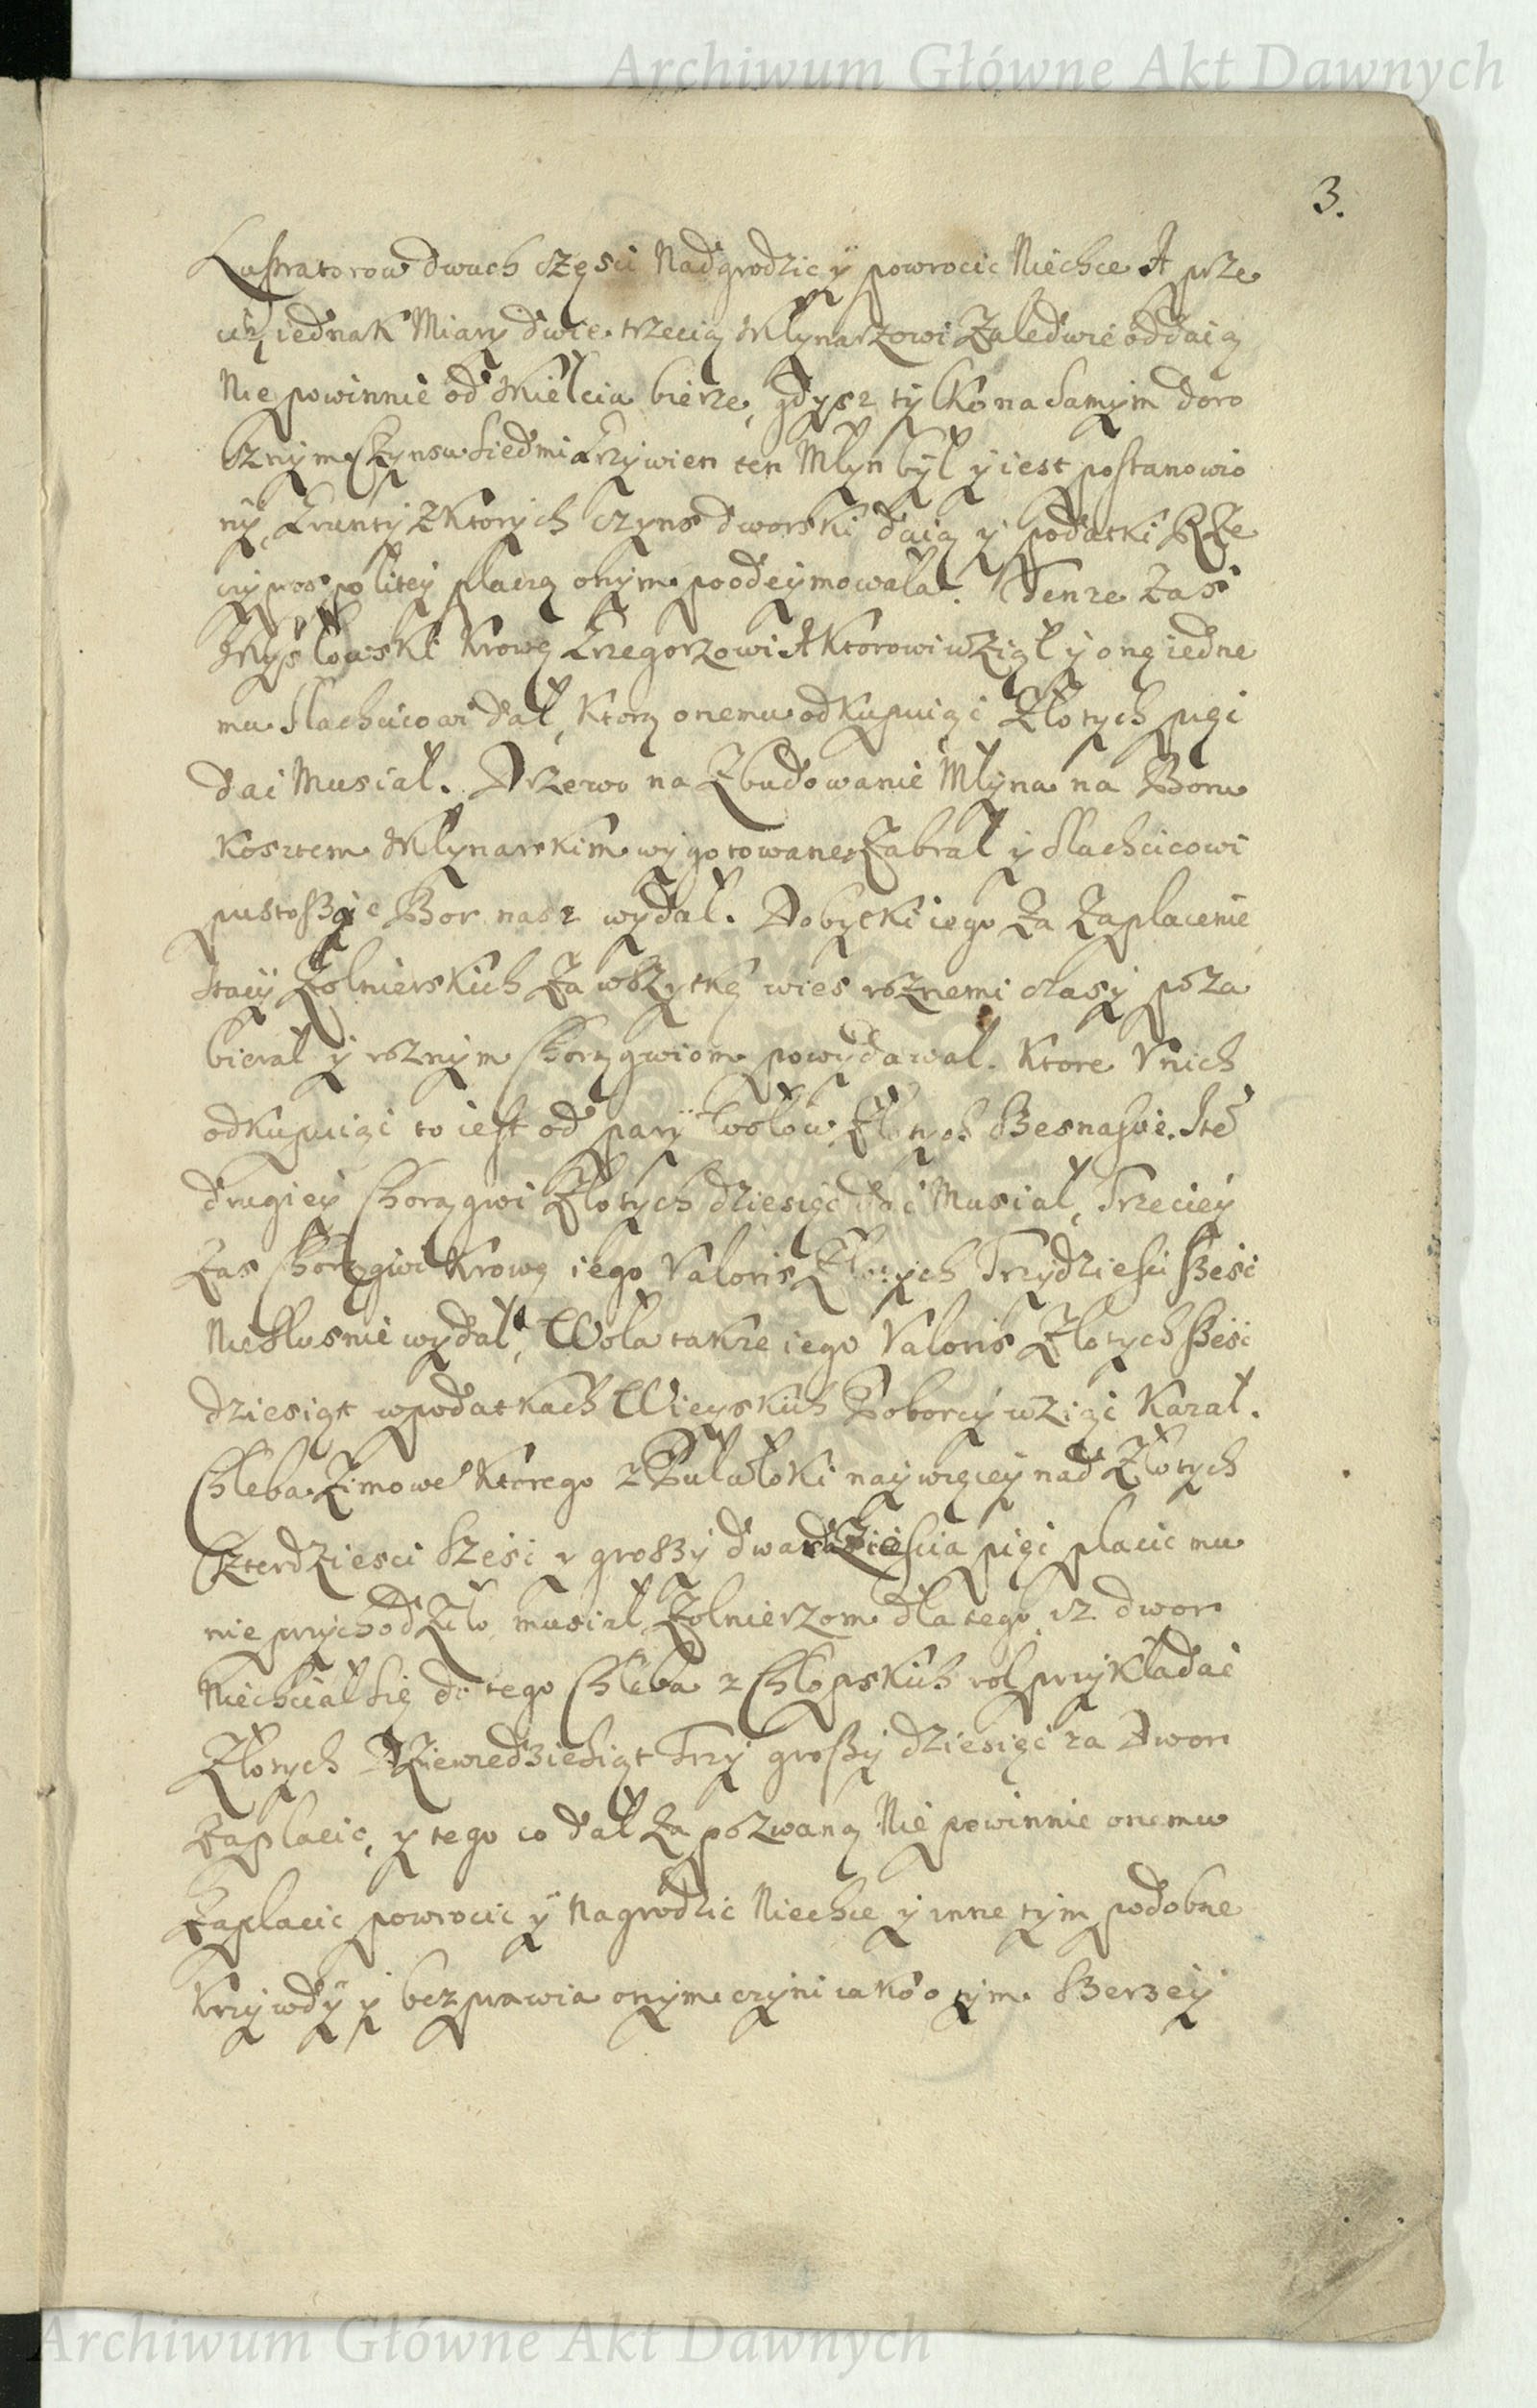 Archiwum Główne Akt Dawnych
3.
Lustratorow dwuch częsci Nadgrodzic y powrocic Niechce A prze
iednak Miary dwie trzecią Młynarzowi Zaledwie oddaią
Nie powinnie od Mielcia bierze, gdysz tylko na Samym doro
cznym Czynsu Siedmi Grzywien ten Młyn był y iest postanowio
ny, Grunty z ktorych czyns dworski daią y podatki RZe
czypospolitey płaczą onym poodeymował. Tenze zas
Mysłowski Krowę Grzegorzowi Aktorowi wziął y onę iedne
mu Slachcicowi dał, ktorą onemu odkupuiąc Złotych pięc
dac Musiał. Drzewo na Zbudowanie Młyna na Boru
kosztem Młynarskim wygotowane Zabrał y Slachcicowi
pustosząc Bor nasz wydał. Dobytki iego Za Zapłacenie
Stacy Zołnierskich Za wszytkę wies roznemi czasy poza
bierał y roznym Chorągwiom powydawał. Ktore Vnich
odkupuiąc to iest od pary Wołow Złotych Szesnascie. Ite
drugiey Chorągwi Złotych dziesięc dac Musiał, Trzeciey
Zas Chorągwi Krowę iego Valoris Złotych Trzydziesci Szesc
Niesłusnie wydał, Woła takze iego Valoris Złotych Szesc
dziesiąt wpodatkach Wieyskich Poborcy wziąc Kazał.
Chleba Zimowe ktorego z Pułwłoki naywięcey nad Złotych
Czterdziesci Szesc y groszy dwadziescia pięc płacic mu
nie przychodziło musiał Zołnierzom dla tego isz dwor
Niechciał Się do tego Chleba z Chłopskich rol przykładac
Złotych Dziewiedziesiąt Trzy groszy dziesięc za Dwor
Zapłacic, y tego co dał Za pozwaną Nie powinnie onemu
Zapłacic powrocic y Nagrodzic Niechce y inne tym podobne
Krzywdy y bezprawia onym czyni iako o tym Szerzey
Archiwum Główne Akt Dawnych